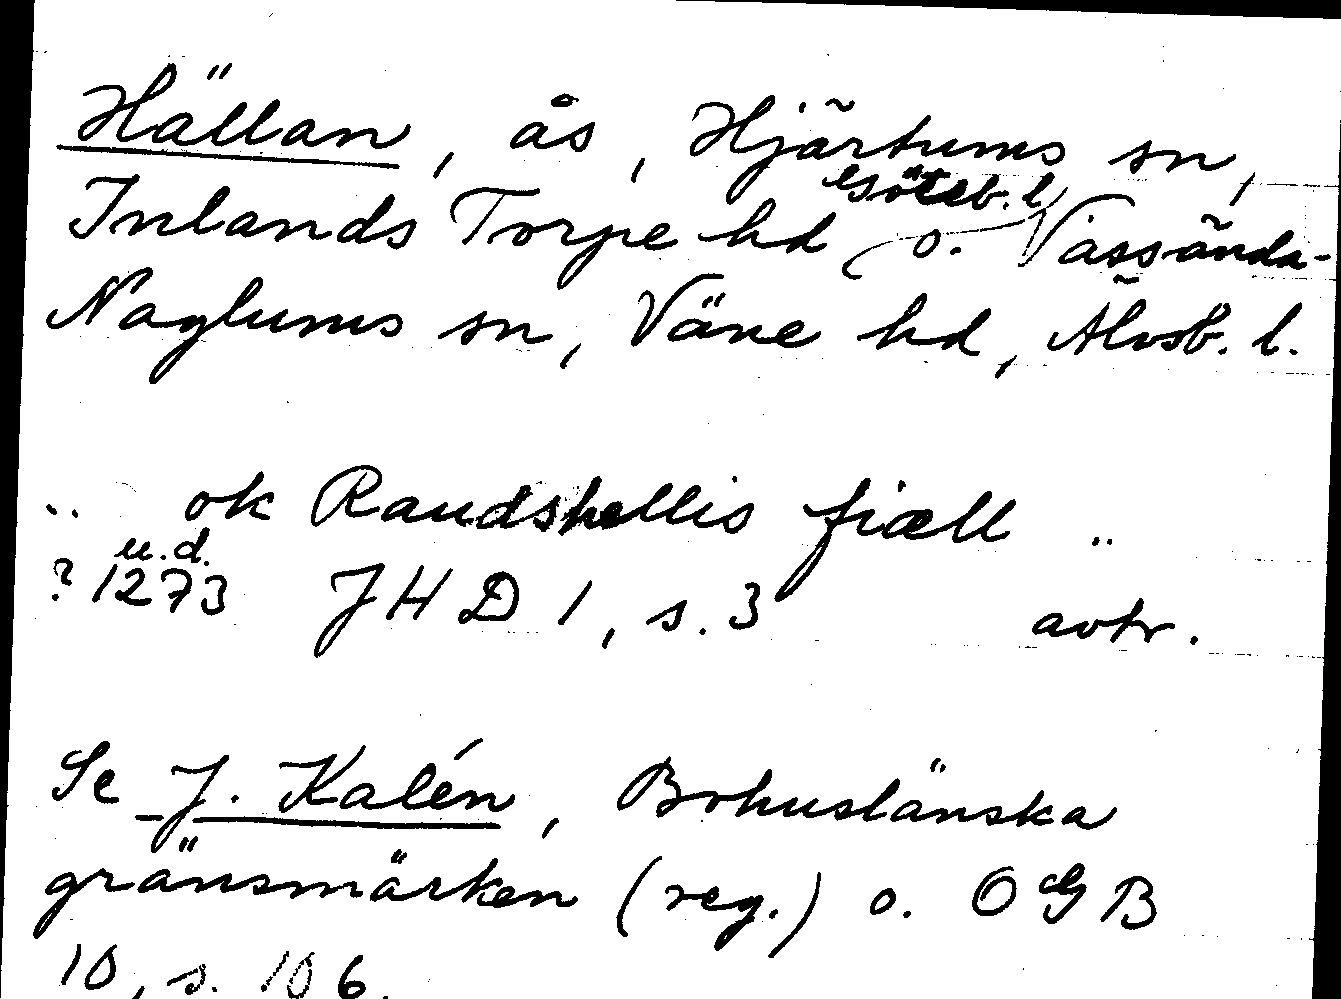 Hällan, ås, Hjärtums sn,
Inlands Torpe hd, Göteb. l, o. Vassända-
Naglums sn, Väne hd, Älvsb. l.
.. ok Raudshellis fiæll ..
? u.d. 1273 JHD 1, s. 3 avtr.
Se J. Kalén, Bohuslänska
gränsmärken (reg.) o. OGB
10, s. 106.